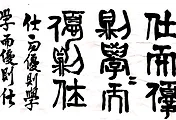 仕而優
則學〻而
優則仕
仕而優則學
學而優則仕